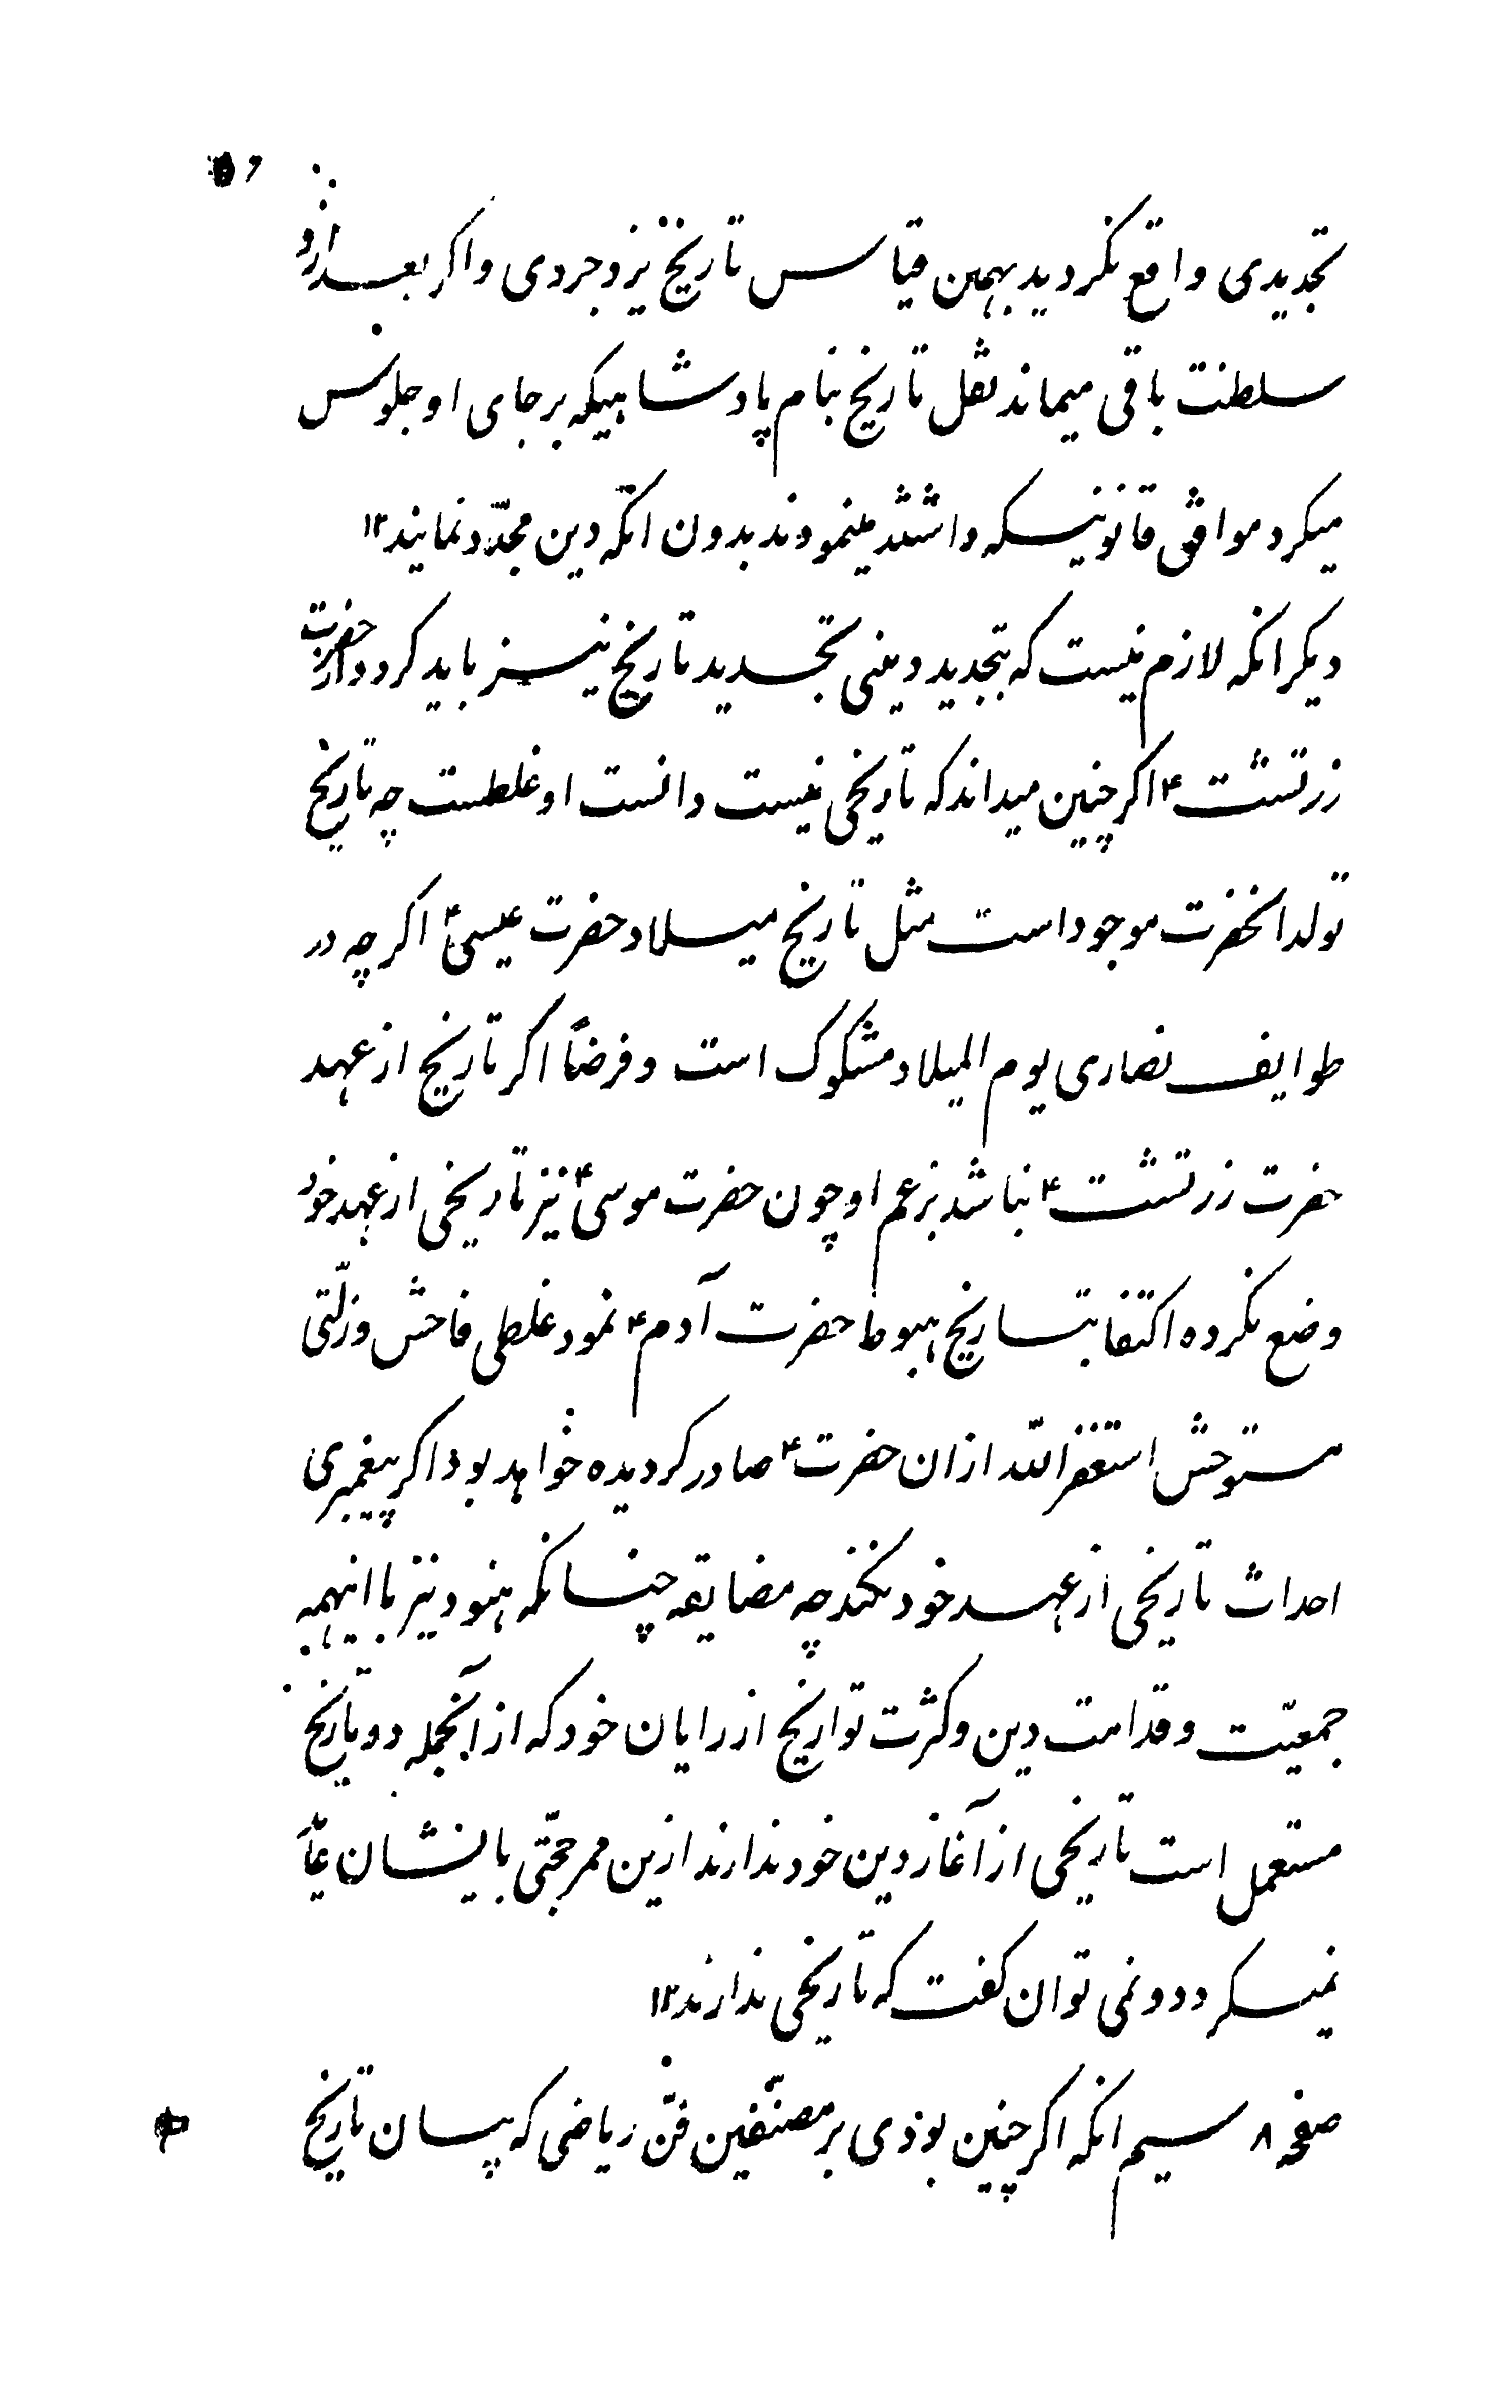 تجدیدی واقع نکردید بهمین قیاس تاریخ یزدجردی واکر بعد ازو
سلطنت باقی میماند نقل تاریخ بنام پادشاهیکه بر جای او جلوس
میکرد موافق قانونیکه داشتند مینمودند بدون انکه دین مجدّد نمایند ۱۲
دیکر انکه لازم نیست که بتجدید دینی تجدید تاریخ نیز باید کرد واز حضرت
زرتشت ۴ اکر چنین میداند که تاریخی نیست دانست او غلطست چه تاریخ
تولد انحضرت موجود است مثل تاریخ میلاد حضرت عیسی ۴ اکرچه در
طوایف نصاری یوم المیلاد مشکوک است و فرضاً اکر تاریخ از عهد
حضرت زرتشت ۴ نباشد بزعم او چون حضرت موسی ۴ نیز تاریخی از عهد خود
وضع نکرده اکتفا بتاریخ هبوط حضرت آدم ۴ نمود غلطی فاحش وزلّتی
مستوحش استغفر اللّه ازان حضرت ۴ صادر کردیده خواهد بود اکر پیغمبری
احداث تاریخی از عهد خود نکند چه مضایقه چنانکه هنود نیز با اینهمه
جمعیّت و قدامت دین و کثرت تواریخ از رایان خود که از آنجمله دو تاریخ
مستعمل است تاریخی از آغاز دین خود ندارند ازین ممر حجّتی بایشان عاید
نمیکردد و نمی توان کفت که تاریخی ندارند ۱۲
صفحه ۸ سیم انکه اکر چنین بودی بر مصنّفین فنّ ریاضی که بیان تاریخ